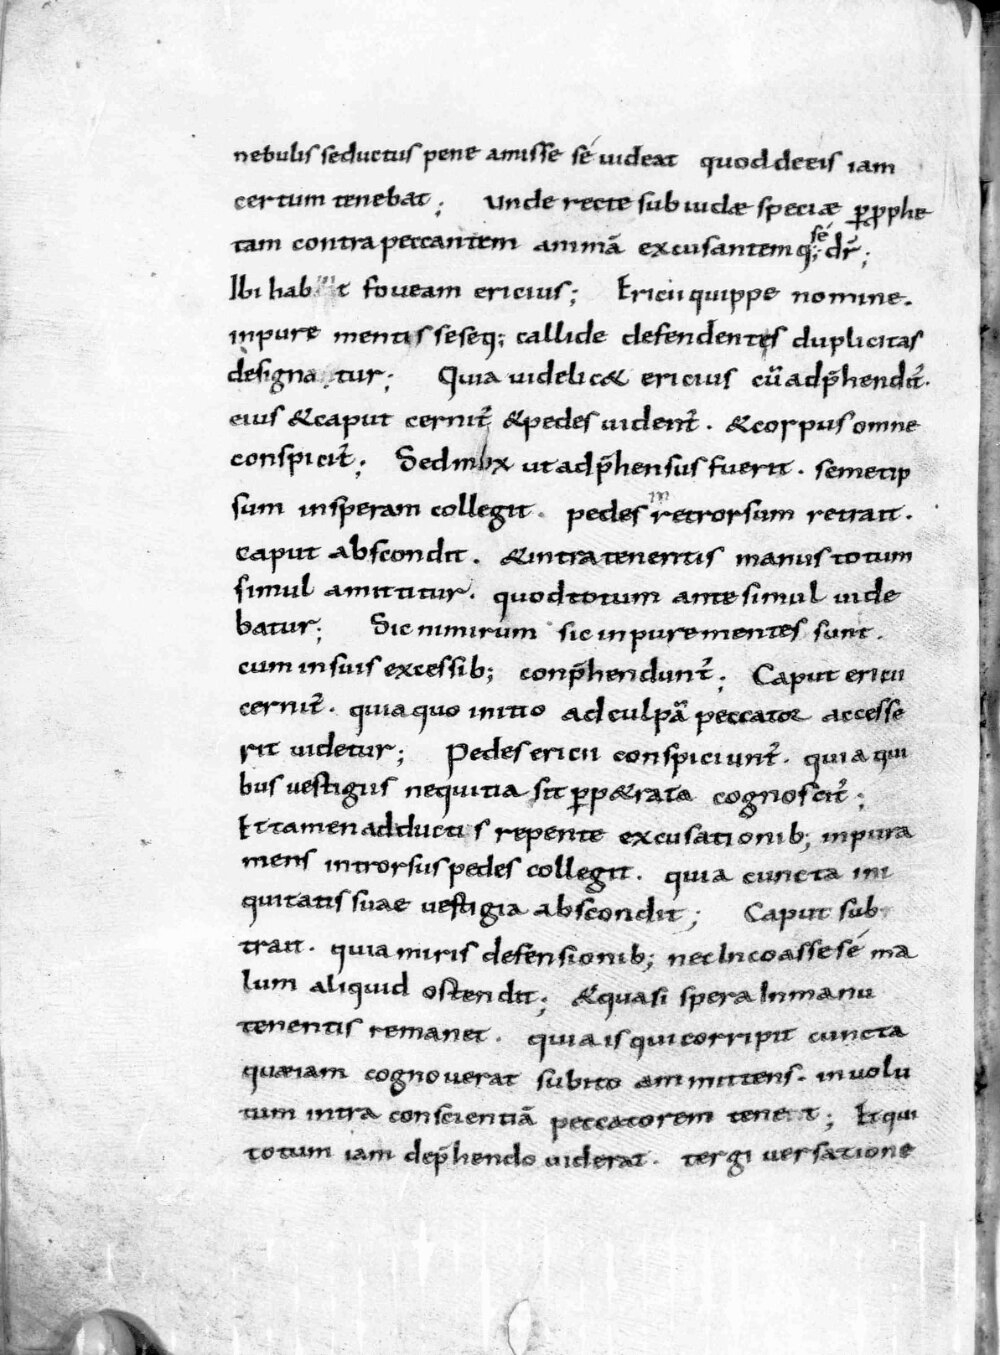 nebulis seductus pene amisse sé uideat quod de eis iam
certum tenebat; Unde recte sub iudæ speciæ ꝑ ꝓphe
tam contra peccantem animā excusantemq; sé dr̄;
Ibi habuit foueam ericius; Ericii quippe nomine.
inpure mentis seseq; callide defendentes duplicitas
designatur; Quia uidelic& ericius cū adp̄hendit̄.
eius & caput cernit̄ & pedes uident̄. & corpus omne
conspicit̄; Sed mox ut adp̄hensus fuerit. semetip
sum in speram collegit. pedes introrsum retrait.
caput abscondit. & intra tenentis manus totum
simul amittitur. quod totum ante simul uide
batur; Sic nimirum sic inpure mentes sunt.
cum in suis excessib; conp̄hendunt̄; Caput ericii
cernit̄. quia quo initio ad culpā peccator accesse
rit uidetur; Pedes ericii conspiciunt̄. quia qui
bus uestigiis nequitia sit ꝑpætrata cognoscit̄;
Et tamen adductis repente excusationib; inpura
mens introrsus pedes collegit. quia cuncta ini
quitatis suae uestigia abscondit; Caput sub
trait. quia miris defensionib; nec incoasse sé ma
lum aliquid ostendit; & quasi spera in manu
tenentis remanet. quia is qui corripit cuncta
quæ iam cognouerat subito ammittens. inuolu
tum intra conscientiā peccatorem tenet; Et qui
totum iam dep̄hendo uiderat. tergiuersatione